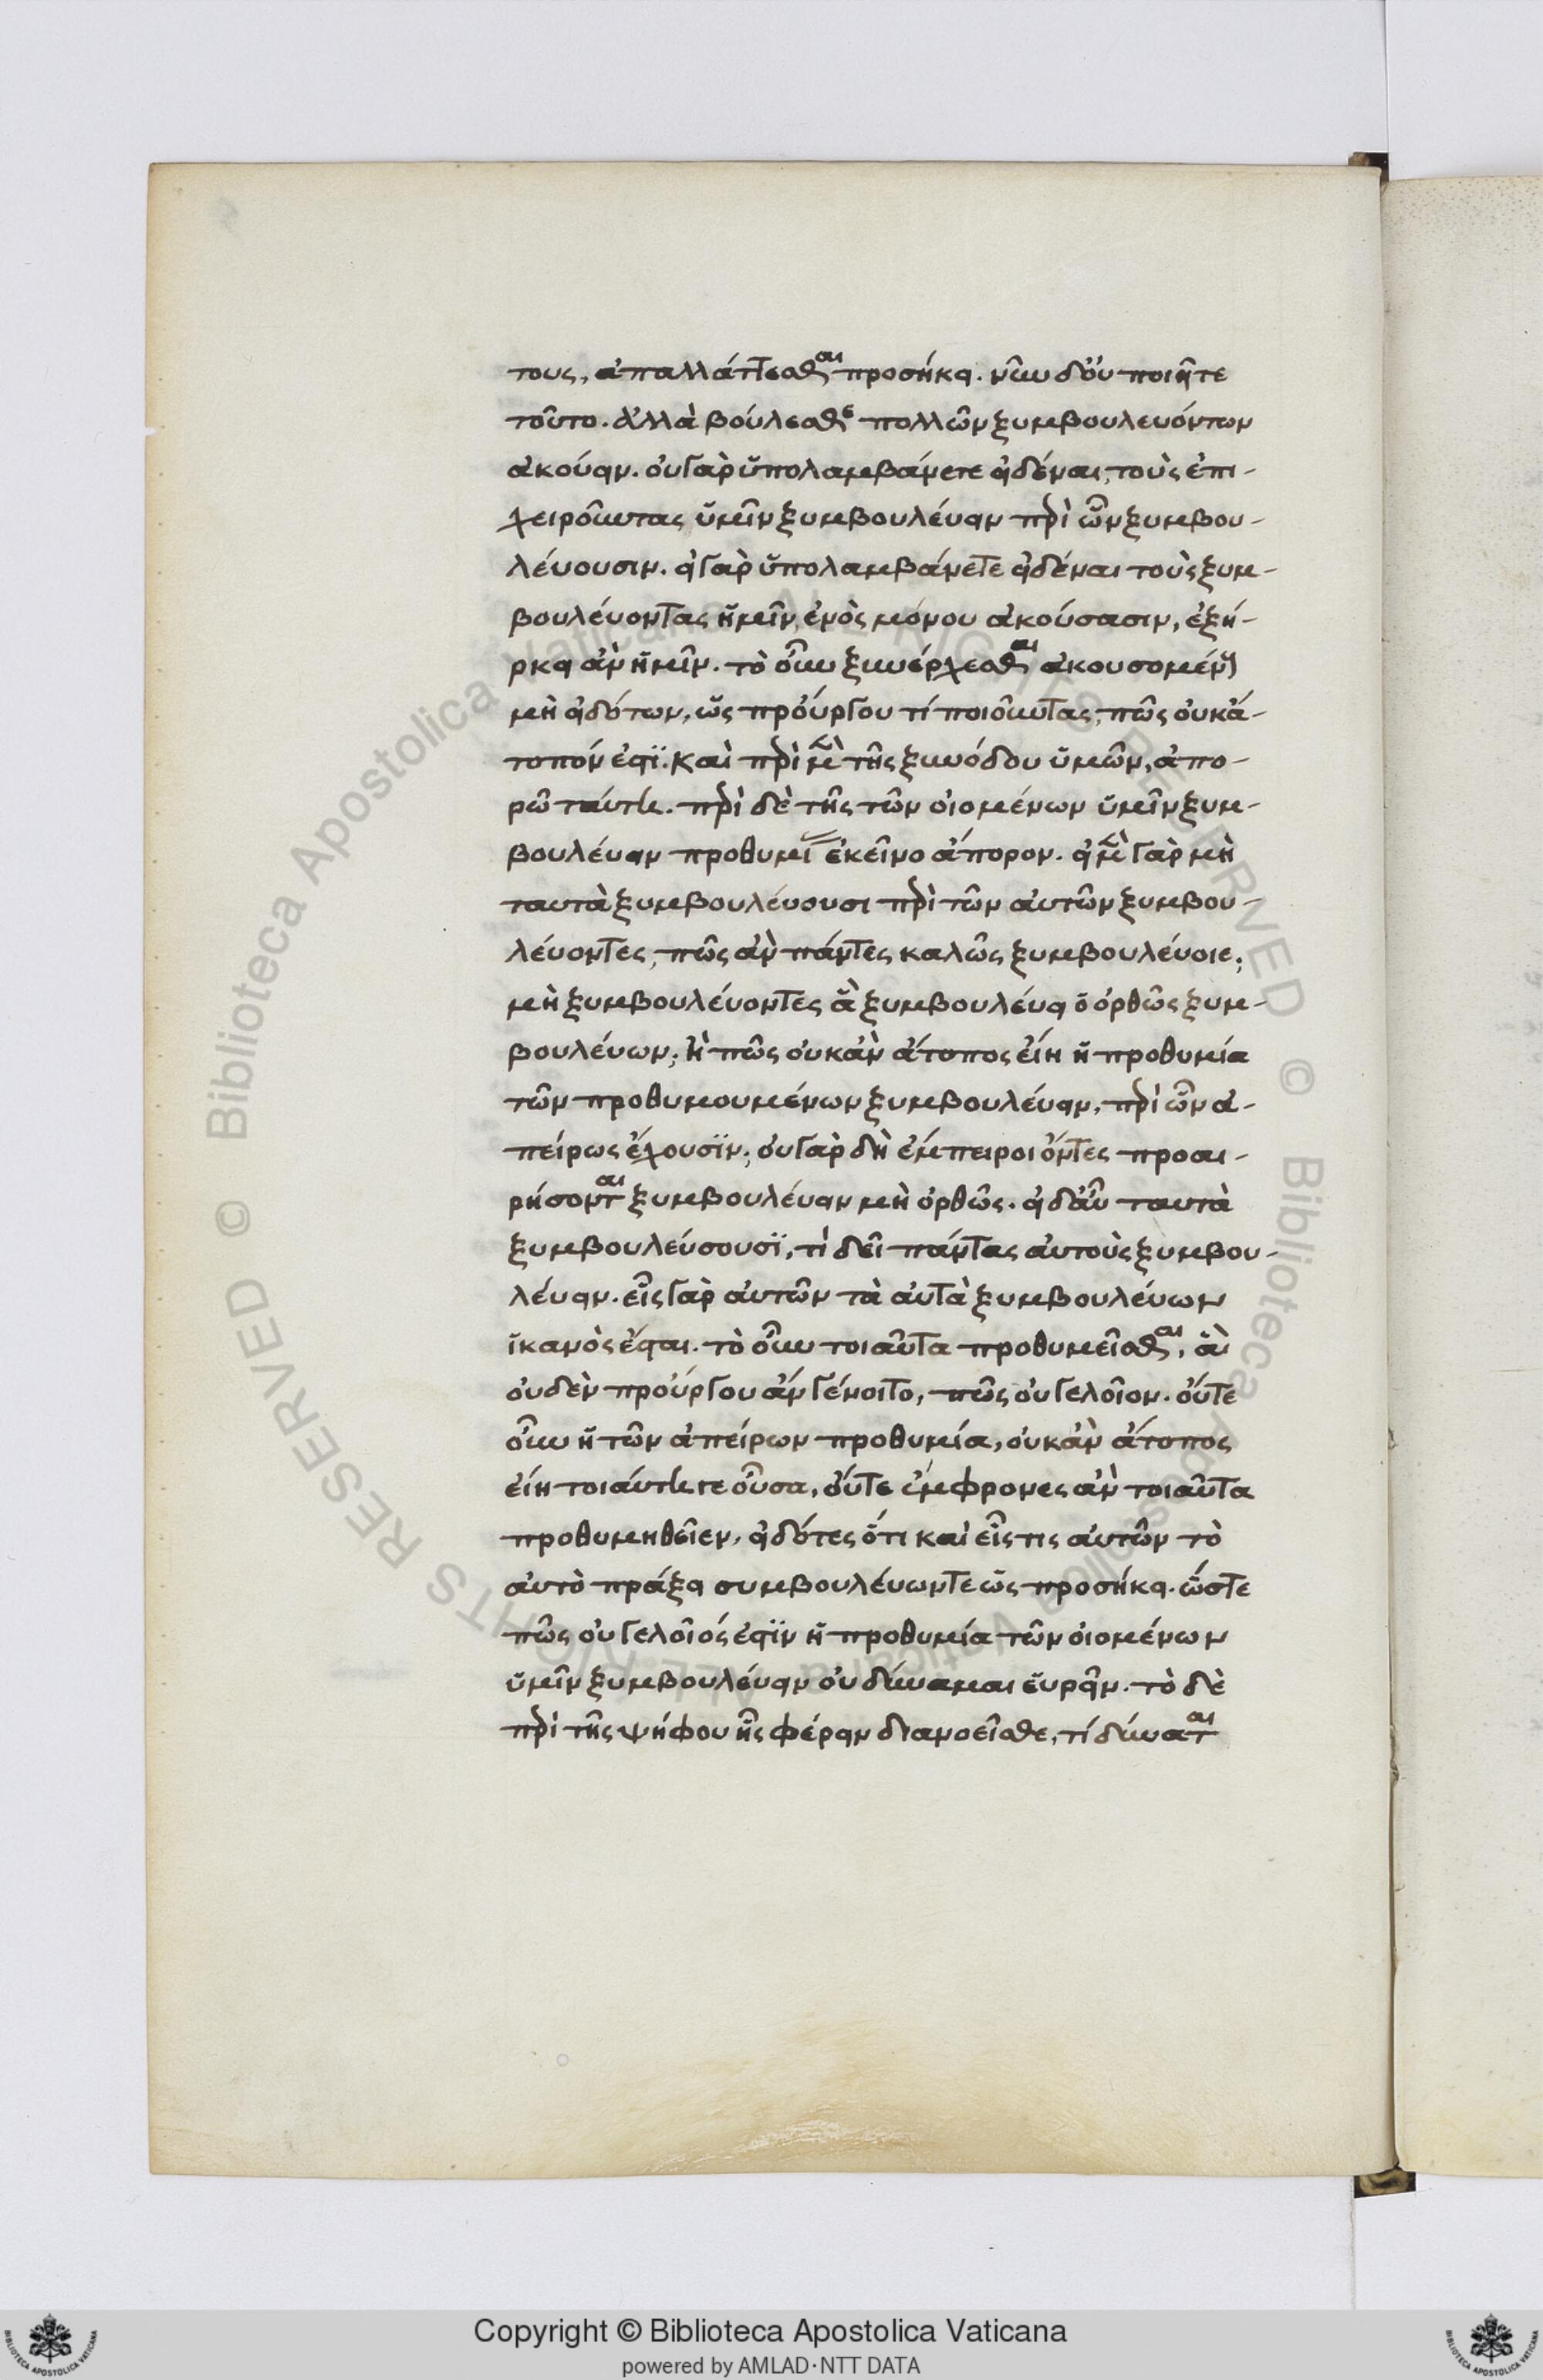 τους, ἀπαλλάττεσθαι προσήκει. νῦν δ' οὐ ποιεῖτε
τοῦτο. ἀλλὰ βούλεσθε πολλῶν ξυμβουλευόντων
ἀκούειν. οὐ γὰρ ὑπολαμβάνετε εἰδέναι, τοὺς ἐπι-
χειροῦντας ὑμῖν ξυμβουλεύειν περὶ ὧν ξυμβου-
λεύουσιν. εἰ γὰρ ὑπολαμβάνετε εἰδέναι τοὺς ξυμ-
βουλεύοντας ἡμῖν, ἑνὸς μόνου ἀκούσασιν, ἐξή-
ρκει ἂν ἡμῖν. τὸ οὖν ξυνέρχεσθαι ἀκουσομένους
μὴ εἰδότων, ὡς προὔργου τί ποιοῦντας, πῶς οὐκ ἄ-
τοπόν ἐστι. καὶ περὶ μὲν τῆς ξυνόδου ὑμῶν, ἀπο-
ρῶ ταύτη. περὶ δὲ τῆς τῶν οἰομένων ὑμῖν ξυμ-
βουλεύειν προθυμίας ἐκεῖνο ἄπορον. εἰ μὲν γὰρ μὴ
ταυτὰ ξυμβουλεύουσι περὶ τῶν αὐτῶν ξυμβου-
λεύοντες, πῶς ἂν πάντες καλῶς ξυμβουλεύοιε;
μὴ ξυμβουλεύοντες ἃ ξυμβουλεύει ὁ ὀρθῶς ξυμ-
βουλεύων; ἢ πῶς οὐκ ἂν ἄτοπος εἴη ἡ προθυμία
τῶν προθυμουμένων ξυμβουλεύειν, περὶ ὧν ἀ-
πείρως ἔχουσϊν; οὐ γὰρ δὴ ἔμπειροι ὄντες προαι-
ρήσονται ξυμβουλεύειν μὴ ὀρθῶς. εἰ δ' αὖ ταυτὰ
ξυμβουλεύσουσϊ, τί δεῖ πάντας αὐτοὺς ξυμβου-
λεύειν. εἷς γὰρ αὐτῶν τὰ αὐτὰ ξυμβουλεύων
ἱκανὸς ἔσται. τὸ οὖν τοιαῦτα προθυμεῖσθαι, ἃ
οὐδὲν προὔργου ἂν γένοιτο, πῶς οὐ γελοῖον. οὔτε
οὖν ἡ τῶν ἀπείρων προθυμία, οὐκ ἂν ἄτοπος
εἴη τοιαύτη τε οὖσα, οὔτε ἔμφρονες ἂν τοιαῦτα
προθυμηθεῖεν, εἰδότες ὅτι καὶ εἷς τις αὐτῶν τὸ
αὐτὸ πράξει συμβουλεύων τε ὡς προσήκει. ὥστε
πῶς οὐ γελοῖός ἐστϊν ἡ προθυμία τῶν οἰομένων
ὑμῖν ξυμβουλεύειν οὐ δύναμαι εὑρεῖν. τὸ δὲ
περὶ τῆς ψήφου ἧς φέρειν διανοεῖσθε, τί δύναται
Copyright © Biblioteca Apostolica Vaticana
powered by AMLAD·NTT DATA